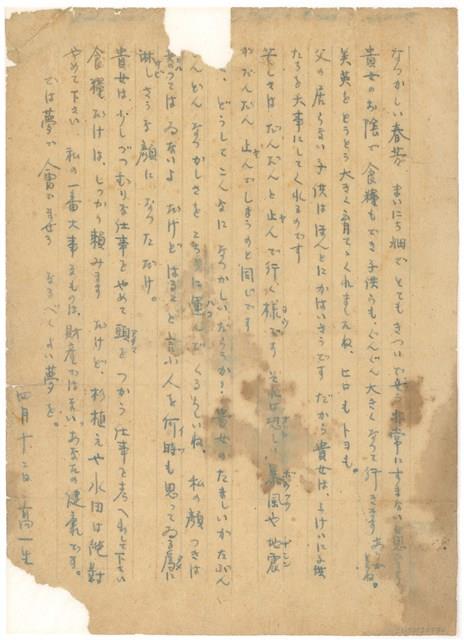 なつかしい春芳 まいにち畑で、とてもきついでせう 非常にすまないと思ひます
貴女のお陰で食糧もでき子供らも、ぐんぐん大きくなつて行きます
美英をとうとう大きく育てゝくれましたね、ヒロもトヨも。
父の居らない子供はほんとにかはいさうです だから貴女は、よけいに子供
たちを大事にしてくれるのです
苦しさはだんだんと止んで行く様です それは恐しい暴風や地震
がだんだん止んでしまうのと同じです
、どうしてこんなになつかしいだらうか? 貴女のたましいがたぶん
んどんなつかしさをこちらに運んでくるらしいね、 私の顔つきは
つてはゐないよ だけどはること言ふ人を何時も思つてゐる為に
淋しさうな顔になつただけ。
貴女は、少しづつむりな仕事をやめて頭をつかう仕事を考へ出して下さい
食糧だけは、しつかり頼みます だけど、杉植えや水田は絶対
やめて下さい 私の一番大事なものは、財産ではない。あなたの健康です。
では夢で会ひませう なるべくよい夢を。
四月十二日 高一生